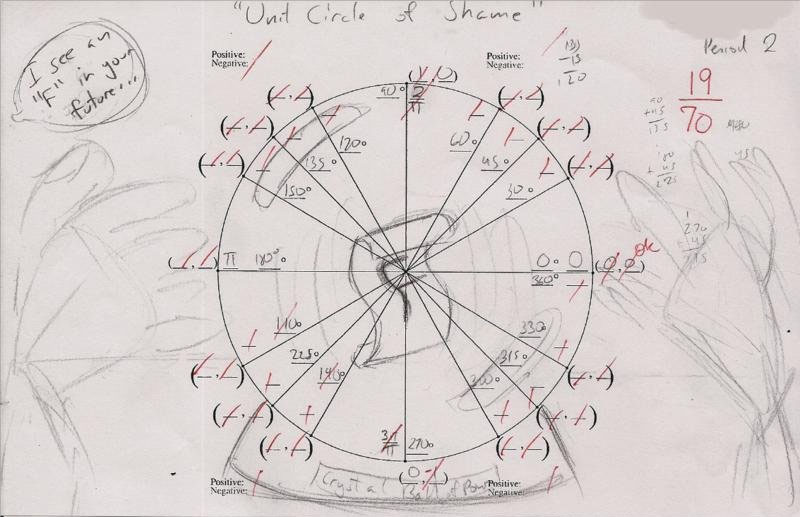 "Unit Circle of Shame"
Period 2
I see an
"F" in your
future...
Positive:
Negative:
Positive:
Negative:
19
70
90
+45
135
180
+45
225
270
+45
45
90°
2
π
(1, 0)
120°
135°
150°
60°
45°
30°
π 180°
0° 0
360°
(0, 0) ok
110°
225°
140°
330°
315°
300°
3π
π
270°
(0, 1)
Crystal Ball of Power
Positive:
Negative:
Positive:
Negative: